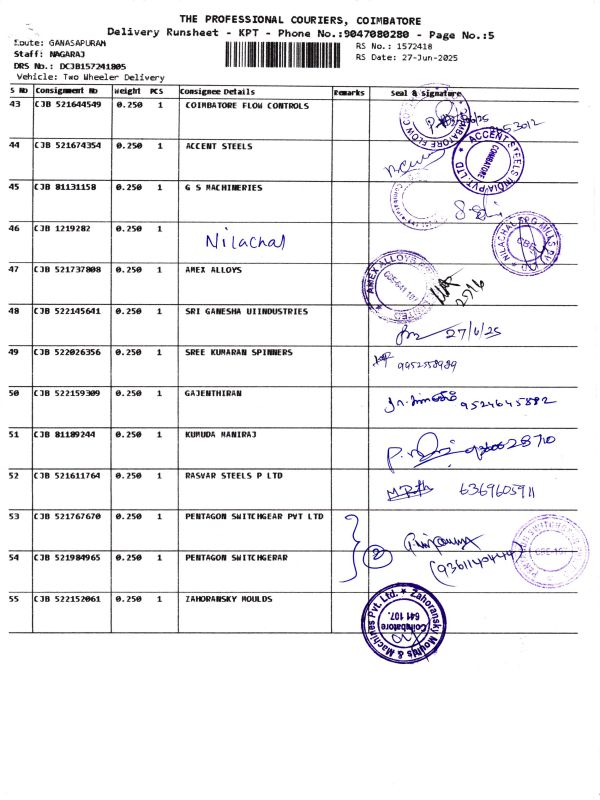 THE PROFESSIONAL COURIERS, COIMBATORE
Delivery Runsheet - KPT - Phone No.:9047080280 - Page No.:5
Route: GANASAPURAM
RS No.: 1572418
Staff: NAGARAJ
RS Date: 27-Jun-2025
DRS No.: DCJB157241805
Vehicle: Two Wheeler Delivery
S No Consignment No Weight PCS Consignee Details Remarks Seal & Signature
43 CJB 521644549 0.250 1 COIMBATORE FLOW CONTROLS
44 CJB 521674354 0.250 1 ACCENT STEELS
ACCENT STEELS INDIA PVT. LTD
COIMBATORE
45 CJB 81131158 0.250 1 G S MACHINERIES
46 CJB 1219282 0.250 1 Nilachal
NILACHAL SPG MILLS
47 CJB 521737808 0.250 1 AMEX ALLOYS
AMEX ALLOYS
48 CJB 522145641 0.250 1 SRI GANESHA UIINDUSTRIES
27/6/25
49 CJB 522026356 0.250 1 SREE KUMARAN SPINNERS
50 CJB 522159309 0.250 1 GAJENTHIRAN
9524645882
51 CJB 81189244 0.250 1 KUMUDA MANIRAJ
52 CJB 521611764 0.250 1 RASVAR STEELS P LTD
6369605911
53 CJB 521767670 0.250 1 PENTAGON SWITCHGEAR PVT LTD
2
54 CJB 521984965 0.250 1 PENTAGON SWITCHGERAR
55 CJB 522152061 0.250 1 ZAHORANSKY MOULDS
Zahoransky Moulds & Machines Pvt. Ltd.
Coimbatore
641 107.